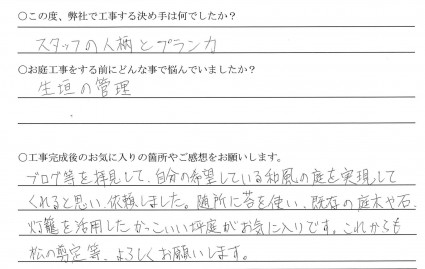 ○この度、弊社で工事する決め手は何でしたか？
スタッフの人柄とプランカ
○お庭工事をする前にどんな事で悩んでいましたか？
生垣の管理
○工事完成後のお気に入りの箇所やご感想をお願いします。
ブログ等を拝見して、自分の希望している和風の庭を実現して
くれると思い、依頼しました。随所に苔を使い、既存の庭木や石、
灯籠を活用したかっこいい坪庭がお気に入りです。これからも
松の剪定等、よろしくお願いします。